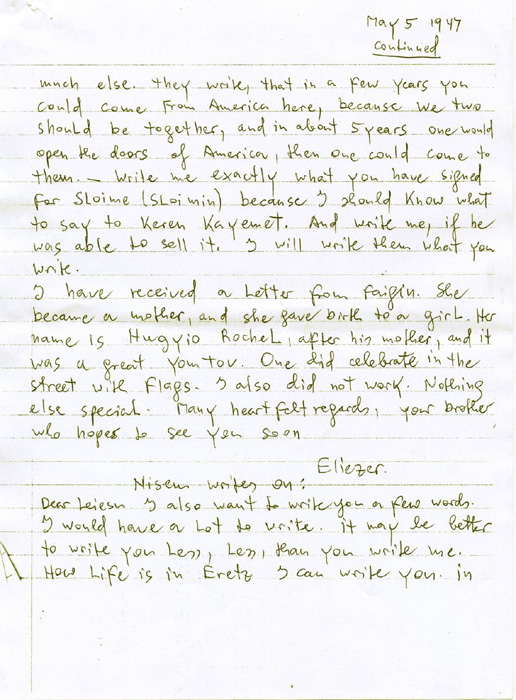 May 5 1947
continued
much else. they write, that in a few years you
could come from America here, because we two
should be together, and in about 5 years one would
open the doors of America, then one could come to
them. - Write me exactly what you have signed
for Sloime (Sloimin) because I should know what
to say to Keren Kayemet. And write me, if he
was able to sell it. I will write them what you
write.
I have received a letter from Faigin. She
became a mother, and she gave birth to a girl. Her
name is Hugyio Rochel, after his mother, and it
was a great yomtov. One did celebrate in the
street with Flags. I also did not work. Nothing
else special. Many heartfelt regards, your brother
who hopes to see you soon
Eliezer.
Nisem writes on:
Dear Leiesn I also want to write you a few words.
I would have a lot to write. it may be better
to write you Less, Less, than you write me.
How Life is in Eretz I can write you. in